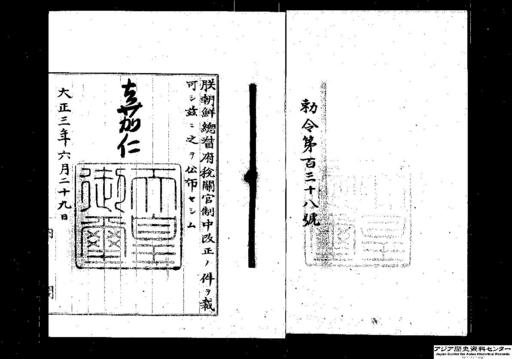 勅令第百三十八號
朕朝鮮總督府稅關官制中改正ノ件ヲ裁
可シ茲ニ之ヲ公布セシム
嘉仁
天皇御璽
大正三年六月二十九日
内閣
アジア歴史資料センター
Japan Center for Asian Historical Records